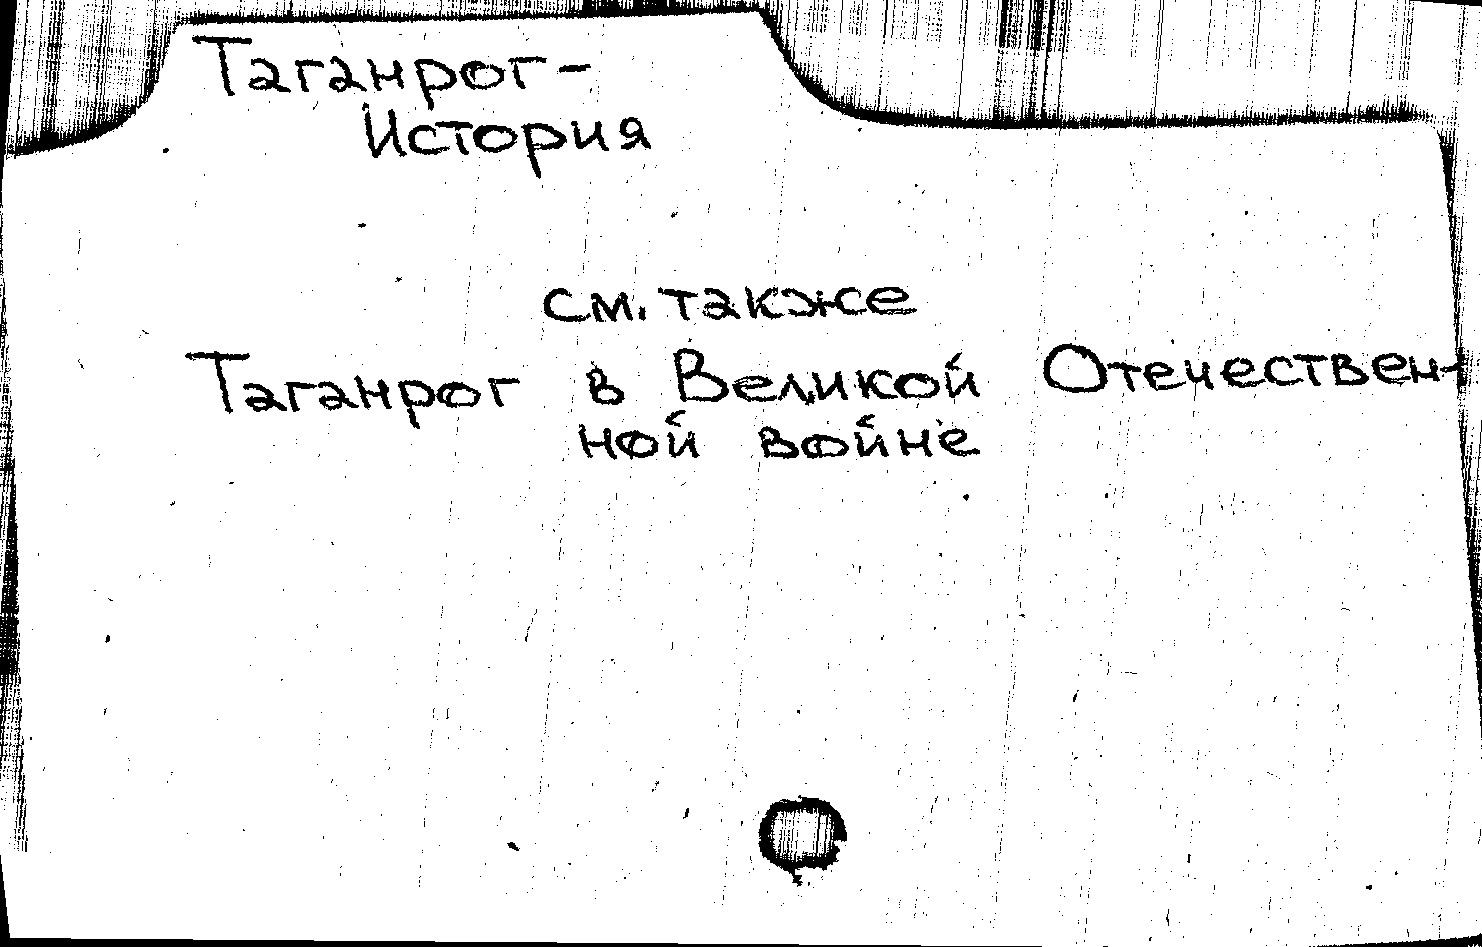 Таганрог-
История
см. также
Таганрог в Великой Отечествен-
ной войне